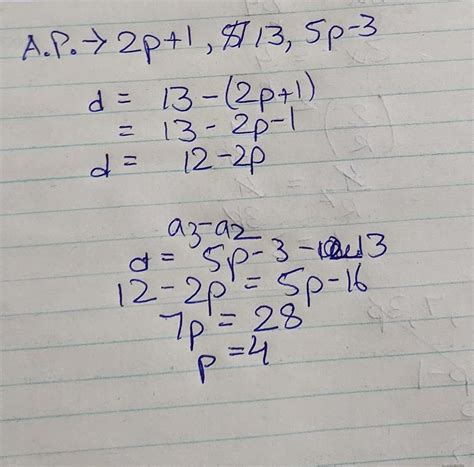 A.P. → 2p+1, 13, 5p-3
d = 13-(2p+1)
= 13-2p-1
d = 12-2p
a3-a2
d = 5p-3-13
12-2p = 5p-16
7p = 28
p = 4